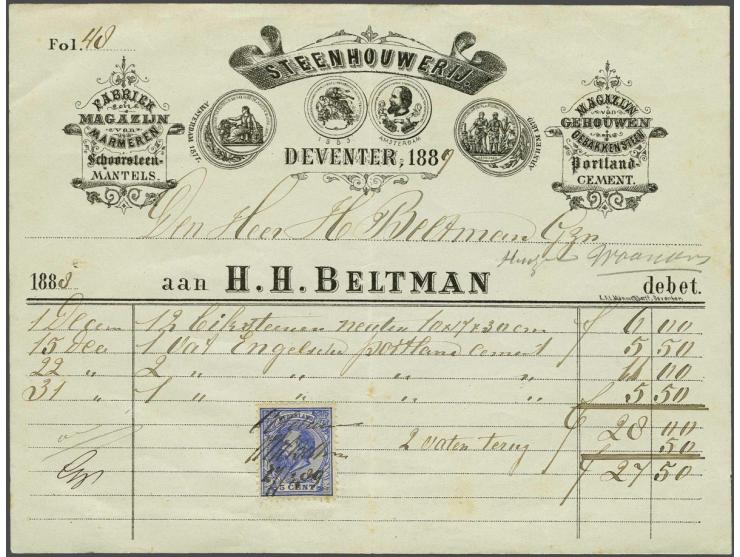 Fol. 48
STEENHOUWERIJ.
FABRIEK
en
MAGAZIJN
van
MARMEREN
Schoorsteen-
MANTELS.
AMSTERDAM 1877.
1883
AMSTERDAM
ARNHEM
MAGAZIJN
van
GEHOUWEN
GEBAKKENSTEEN
Portland-
CEMENT.
DEVENTER, 1889
Den Heer H Beltman Gzn
1888 aan H. H. BELTMAN debet.
1 Decem 12 neuten 10x17x30 cm f 6 00
15 Dec 1 vat Engelsche portland cement 5 50
22 " 2 " " " " 11 00
31 " 1 " " " " 5 50
f 28 00
2 vaten terug 50
f 27 50
5 CENT